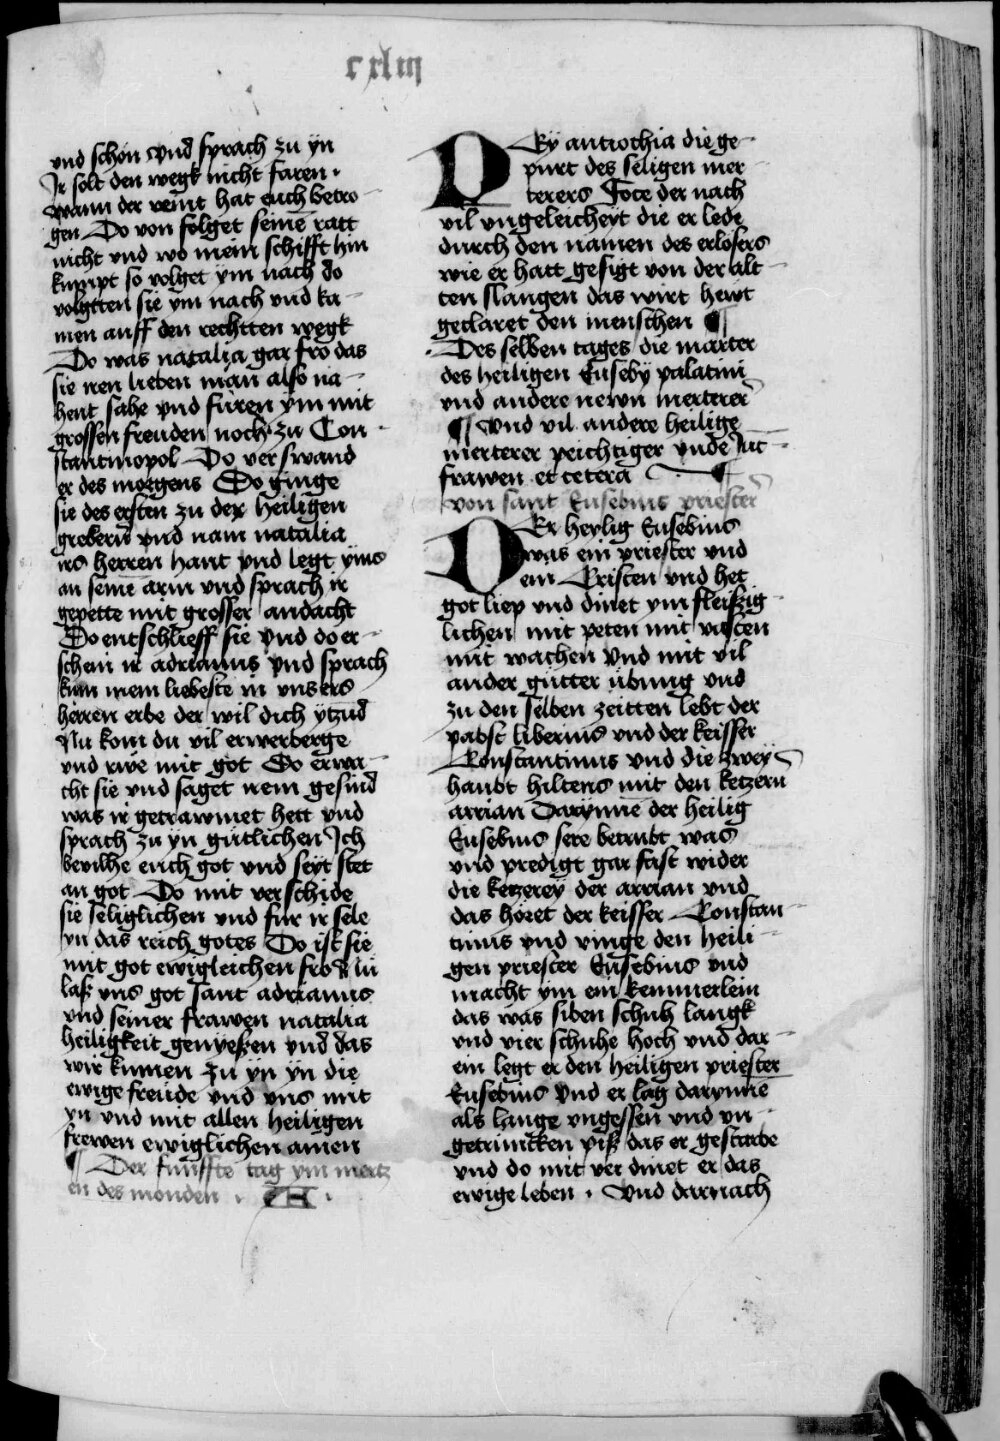 cxliij
vnd schon vnd sprach zu yn
Ir solt den wegk nicht faren ·
wann der veint hat euch betro-
gen Do von folget seinē ratt
nicht vnd wo mein schifft hin
kumpt so volget ym nach do
volgtten sie ym nach vnd ka-
men auff den rechtten wegk
Do was natalia gar fro das
sie iren lieben man also na-
hent sahe vnd furen ym mit
grossen freuden noch zu Con-
stantinopol Do verswand
er des morgens Do ginge
sie des ersten zu der heiligen
grebern vnd nam natalia
irs herren hant vnd legt yms
an seinē arm vnd sprach ir
gepette mit grosser andacht
Do entschlieff sie vnd do er-
schein ir adrianus vnd sprach
kum mein liebeste in vnsers
herren erbe der wil dich ytzūd
Nu kom du vil erwerberge
vnd rwe mit got Do erwa-
cht sie vnd saget irem gesind
was ir getrawmet hett vnd
sprach zu yn gutlichen Ich
bevilhe euch got vnd seyt stet
an got Do mit verschide
sie seliglichen vnd fur ir sele
yn das reich gotes Do ist sie
mit got ewigleichen fro Nu
laß vns got sant adrianus
vnd seiner frawen natalia
heiligkeit genyeßen vnd das
wir kumen zu yn yn die
ewige freude vnd vns mit
yn vnd mit allen heiligen
frewen ewiglichen amen
¶ Der funffte tag ym mertz
en des monden · A ·
Bey antiochia die ge-
purt des seligen mer-
terers Foce der nach
vil vngeleicheyt die er lede
durch den namen des erlosers
wie er hatt gesigt von der alt-
ten slangen das wirt hewt
geclaret den menschen ¶
Des selben tages die marter
des heiligen Euseby palatini
vnd andere newn merterer
¶ Vnd vil andere heilige
merterer peichtiger vnde Iuc-
frawen et cetera ¶
von sant Eusebius priester
Der heylig Eusebius
was ein priester vnd
ein Cristen vnd het
got liep vnd dinet ym fleißig-
lichen mit peten mit vasten
mit wachen Vnd mit vil
ander gutter übung vnd
zu den selben zeitten lebt der
pabst liberius vnd der keisser
Constantinus vnd die zwey
haubt hiltens mit den ketzern
arrian Darynne der heilig
Eusebius sere betrubt was
vnd predigt gar fast wider
die ketzerey der arrian vnd
das höret der keisser Constan-
tinus vnd vinge den heili-
gen priester Eusebius vnd
macht ym ein kemmerlein
das was siben schuh langk
vnd vier schuhe hoch vnd dar-
ein legt er den heiligen priester
Eusebius Vnd er lag darynnē
als lange vngessen vnd vn-
getrincken piß das er gestarbe
vnd do mit verdinet er das
ewige leben · Vnd darnach